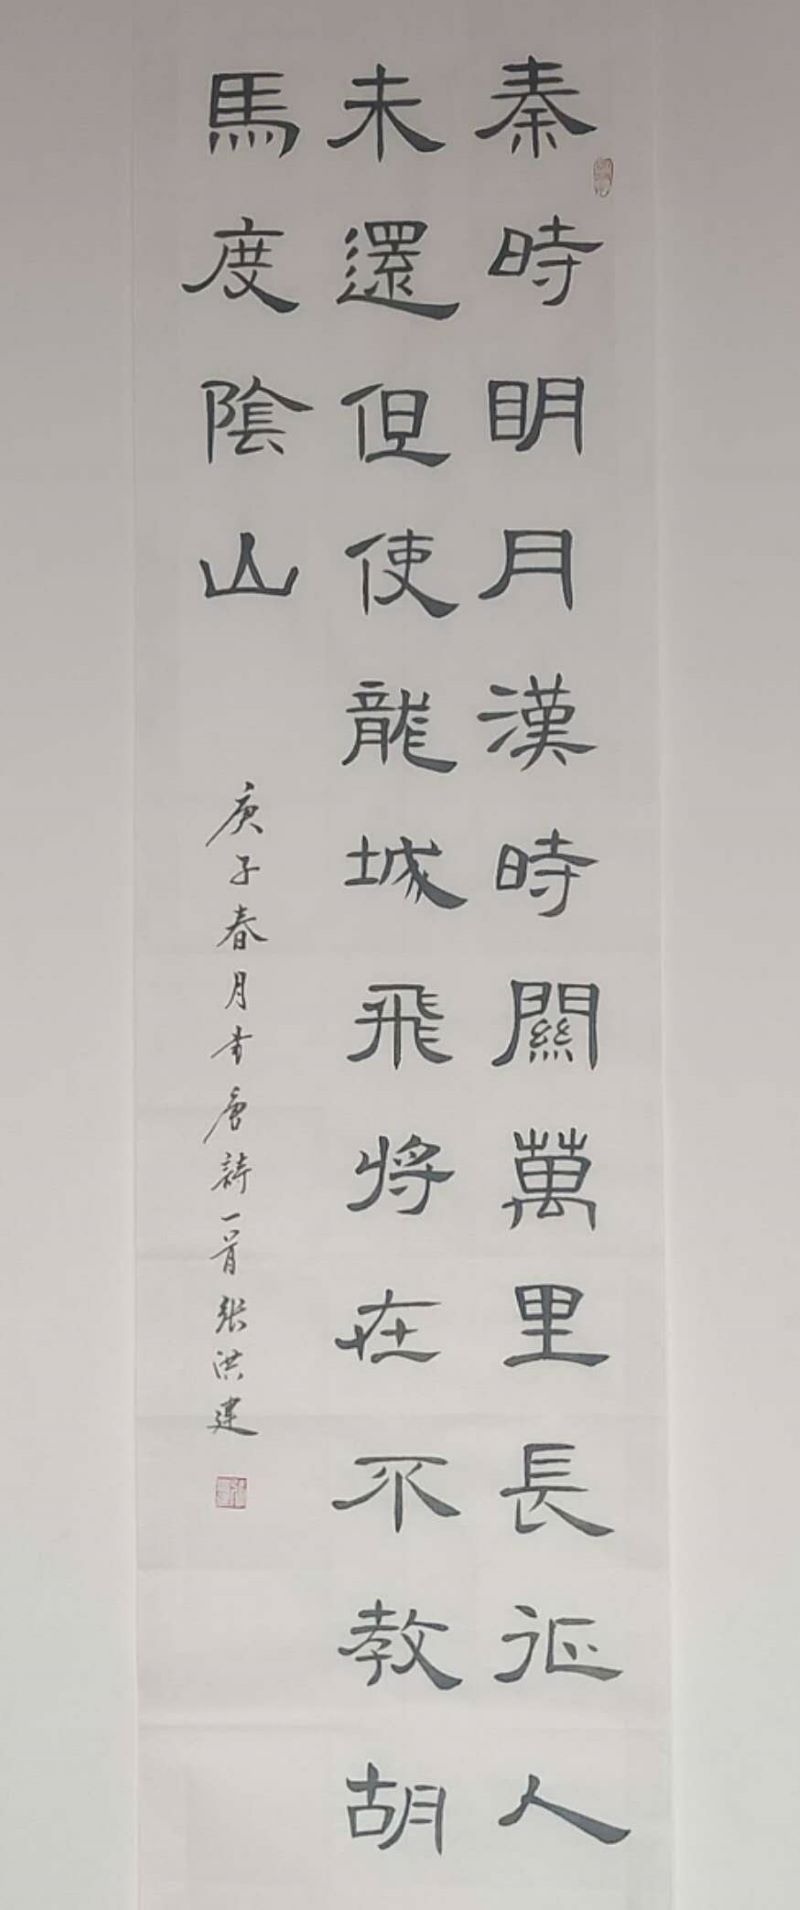 秦時明月漢時關萬里長征人
未還但使龍城飛將在不教胡
馬度陰山
庚子春月书唐詩一首张洪建